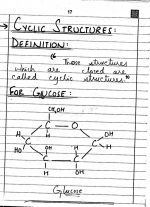 → CYCLIC STRUCTURES:
DEFINITION:
" Those structures
which are closed are
called cyclic structures."
FOR GLUCOSE:
CH₂OH
C O
H OH
C C
HO OH H
C C
H OH
Glucose